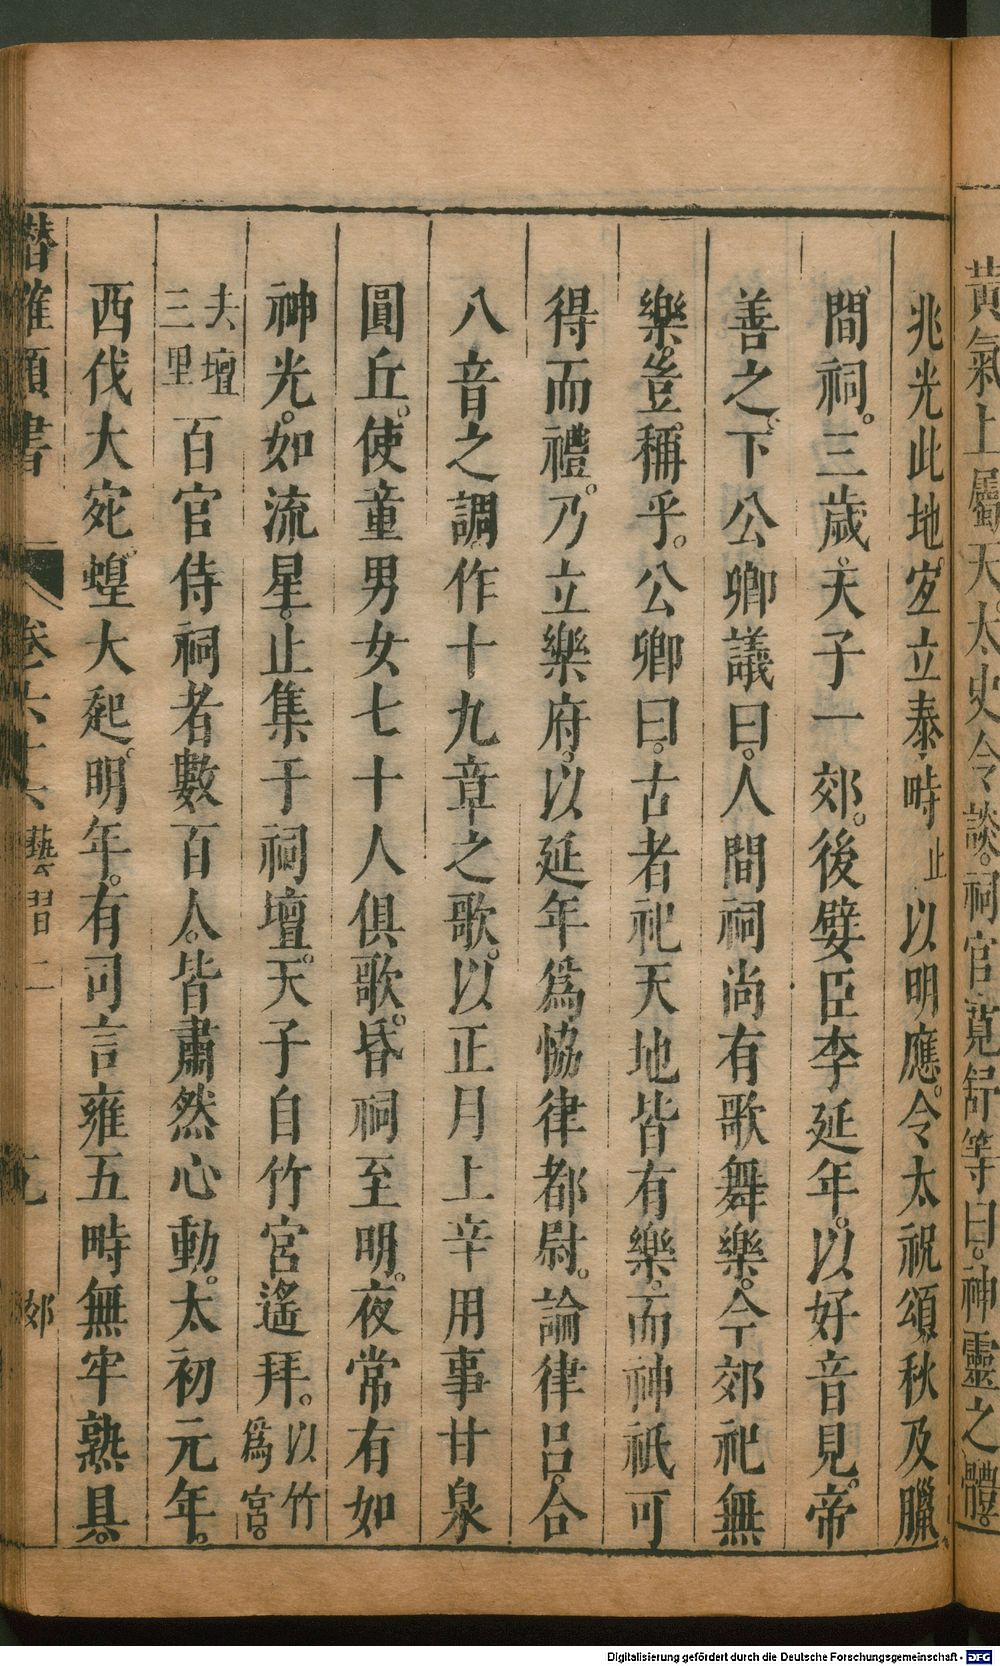 黃氣上屬天太史令談。祠官寬舒等曰。神靈之體。
兆光此地。宜立泰畤止以明應。令太祝領秋及臘。
間祠。三歲。天子一郊。後嬖臣李延年。以好音見。帝
善之。下公卿議曰。人間祠尚有歌舞樂。今郊祀無
樂。豈稱乎。公卿曰。古者祀天地皆有樂。而神祇可
得而禮。乃立樂府。以延年爲恊律都尉。論律呂。合
八音之調。作十九章之歌。以正月上辛用事甘泉
圓丘。使童男女七十人俱歌。昏祠至明。夜常有如
神光。如流星。止集于祠壇。天子自竹宮遙拜。以竹爲宮。
去壇三里百官侍祠者數百人。皆肅然心動。太初元年。
西伐大宛。蝗大起。明年。有司言雍五畤無牢熟具。
潛確類書 卷六十六 藝習二 郊
Digitalisierung gefördert durch die Deutsche Forschungsgemeinschaft - DFG